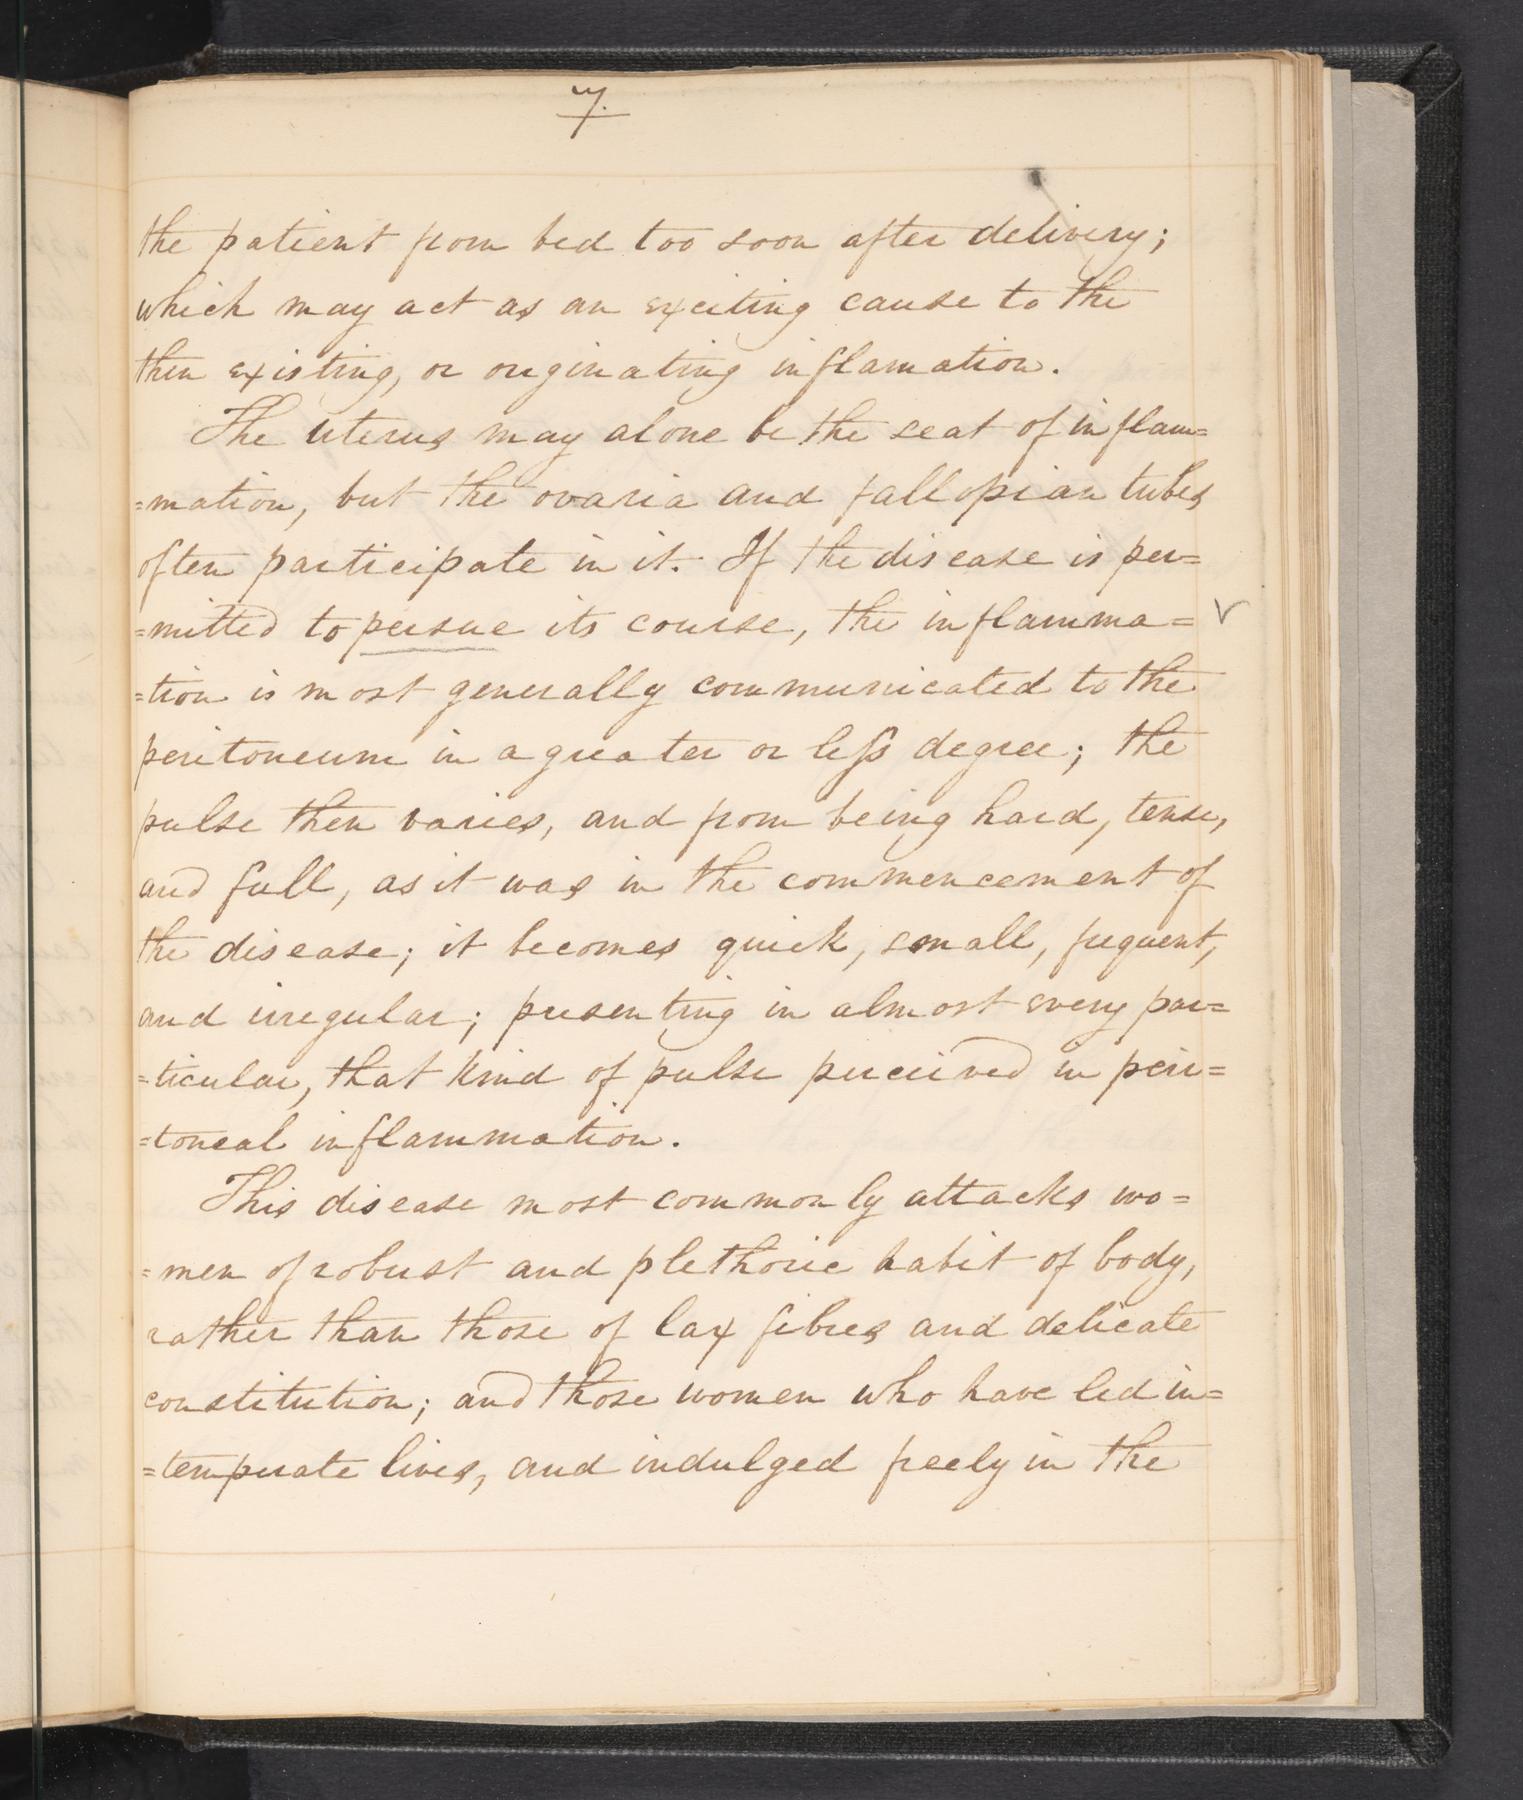 7.
the patient from bed too soon after delivery;
which may act as an exciting cause to the
then existing, or originating inflamation.
The uterus may alone be the seat of inflam=
=mation, but the ovaria and fallopian tubes
often participate in it. If the disease is per=
=mitted to persue its course, the inflamma=
=tion is most generally communicated to the
peritoneum in a greater or less degree; the
pulse then varies, and from being hard, tense,
and full, as it was in the commencement of
the disease; it becomes quick, small, frequent,
and irregular; presenting in almost every par=
=ticular, that kind of pulse perceived in peri=
=toneal inflammation.
This disease most commonly attacks wo=
=men of robust and plethoric habit of body,
rather than those of lax fibres and delicate
constitution; and those women who have led in=
=temperate lives, and indulged freely in the